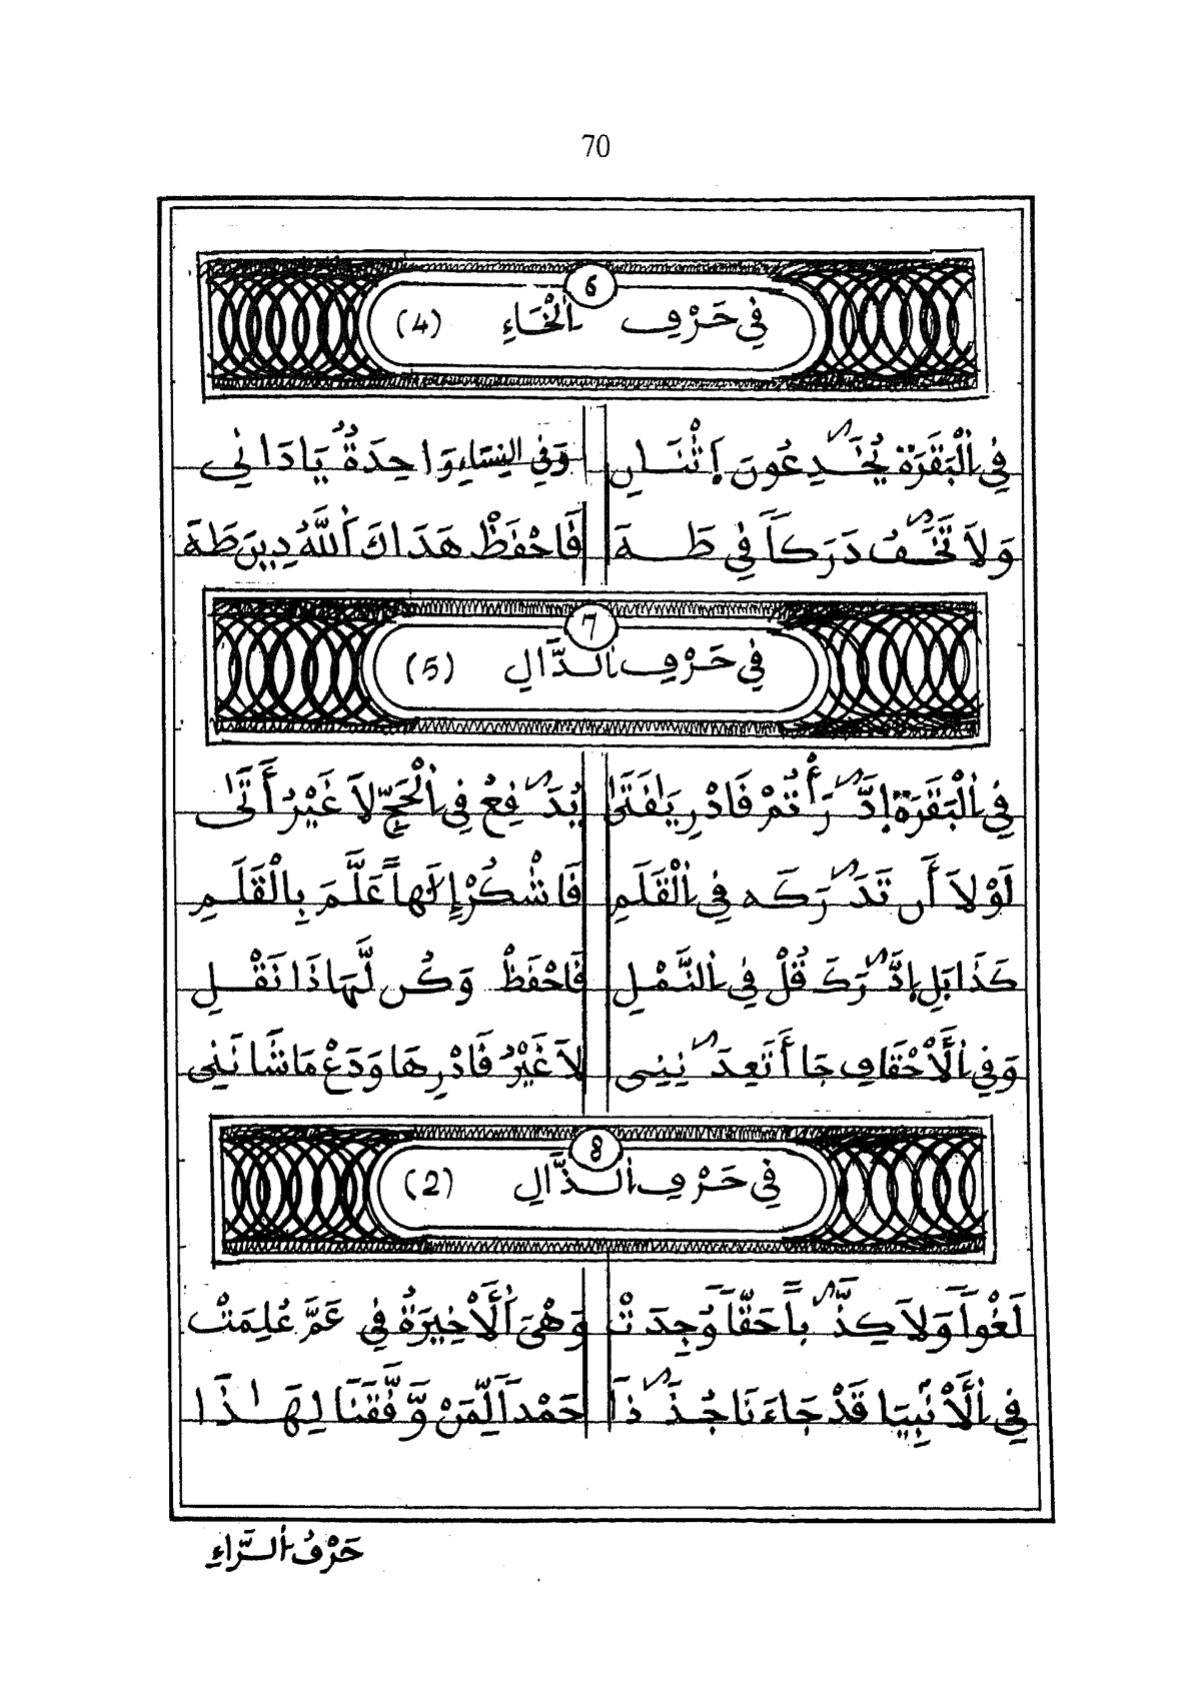 70
6
فِي حَرْفِ الْخَاءِ (4)
فِي الْبَقَرَة يُخَٰدِعُونَ إِثْنَانِ وَفِي النِّسَاءِ وَاحِدَةٌ يَادَانِي
وَلَا تَخَٰفُ دَرَكاً فِي طَهَ فَاحْفَظْ هَدَاكَ اللَّهُ دِينَ طَهَ
7
فِي حَرْفِ الدَّالِ (5)
فِي الْبَقَرَة إِدَّٰرَأْتُمْ فَادْرِ يَافَتَىٰ يُدَٰفِعُ فِي الْحَجِّ لَا غَيْرُ أَتَىٰ
لَوْلَا أَن تَدَٰرَكَه فِي الْقَلَمِ فَاشْكُرْ إِلَٰهاً عَلَّمَ بِالْقَلَمِ
كَذَا بَلِ إِدَّٰرَكَ قُلْ فِي النَّمْلِ فَاحْفَظْ وَكُن لَّهَا ذَا نَقْلِ
وَفِي الْأَحْقَافِ جَا أَتَعِدَٰنِنِي لَا غَيْرُ فَادْرِهَا وَدَعْ مَا شَانَنِي
8
فِي حَرْفِ الذَّالِ (2)
لَغْواً وَلَا كِذَّٰباً حَقّاً وُجِدَتْ وَهْيَ الْأَخِيرَةُ فِي عَمَّ عُلِمَتْ
فِي الْأَنْبِيَا قَدْ جَاءَنَا جُذَٰذاً حَمْداً لِّمَنْ وَّفَّقَنَا لِهَٰذَا
حَرْفُ الرَّاءِ